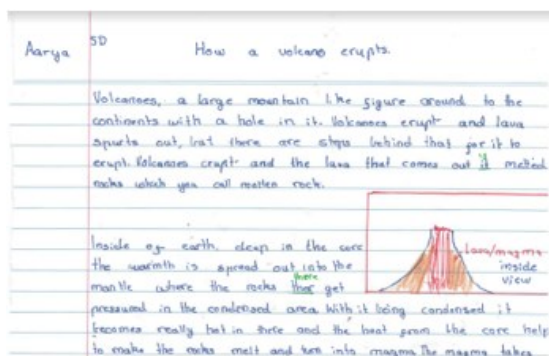 Aarya 5D How a volcano erupts.
Volcanoes, a large mountain like figure around to the
continents with a hole in it. Volcanoes erupt and lava
spurts out, but there are steps behind that for it to
erupt. Volcanoes erupt and the lava that comes out is melted
rocks which you call molten rock.
Lava/magma
inside
view
Inside of earth, deep in the core
the warmth is spread out into the
mantle where the rocks there get
pressured in the condensed area. With it being condensed it
becomes really hot in there and the heat from the core help
to make the rocks melt and turn into magma. The magma takes